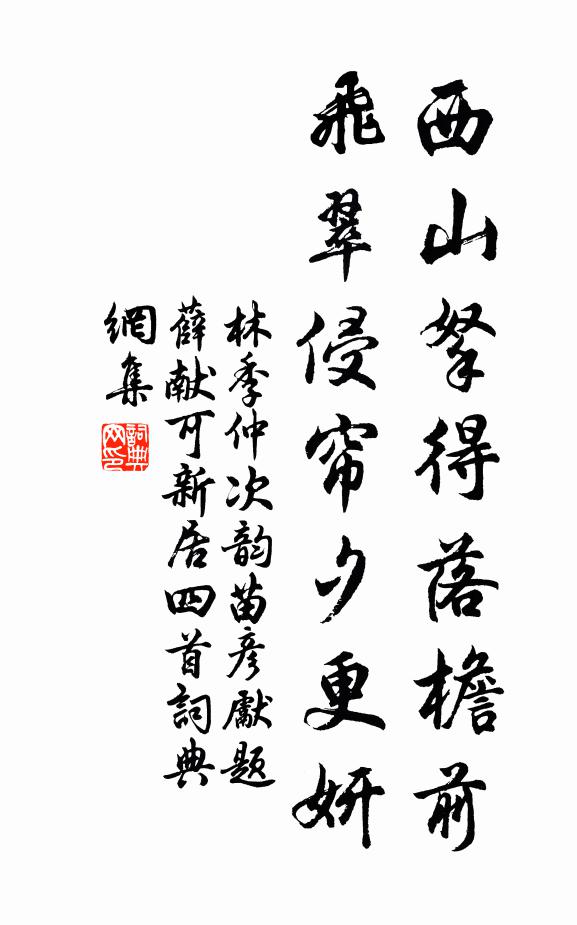 西山拏得落檐前
飛翠侵帘夕更妍
林季仲次韵苗彦獻題
薛献可新居四首詞典
網集
詞典
网印